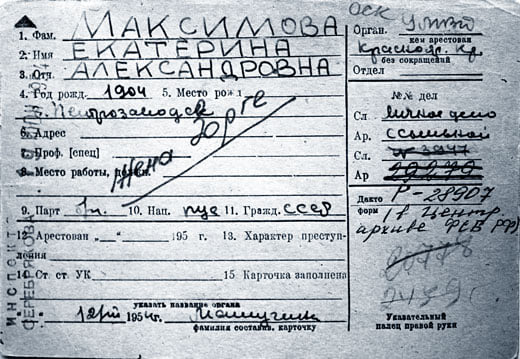 1. Фам. МАКСИМОВА
2. Имя ЕКАТЕРИНА
3. Отч. АЛЕКСАНДРОВНА
4. Год рожд. 1904 5. Место рожд.
г. Петрозаводск
6. Адрес
7. Проф. [спец]
8. Место работы, должн.
Жена Зорге
9. Парт б/п. 10. Нац. рус 11. Гражд. СССР
12. Арестован „__“ 195 г. 13. Характер преступления
14. Ст. ст. УК 15 Карточка заполнена
указать название органа
12/VII 1954 г.
фамилия составл. карточку
ИНСПЕКТ
СЕРЕБРЯКОВА
ОСК
Орган. УМВД
кем арестован
Краснояр. Кр
без сокращений
Отдел
№№ дел
Сл. личное дело
Ар. ссыльной
Сл. № 3947
Ар
Дакто Р-28907
форм (в Центр.
архиве ФСБ РФ)
Указательный
палец правой руки